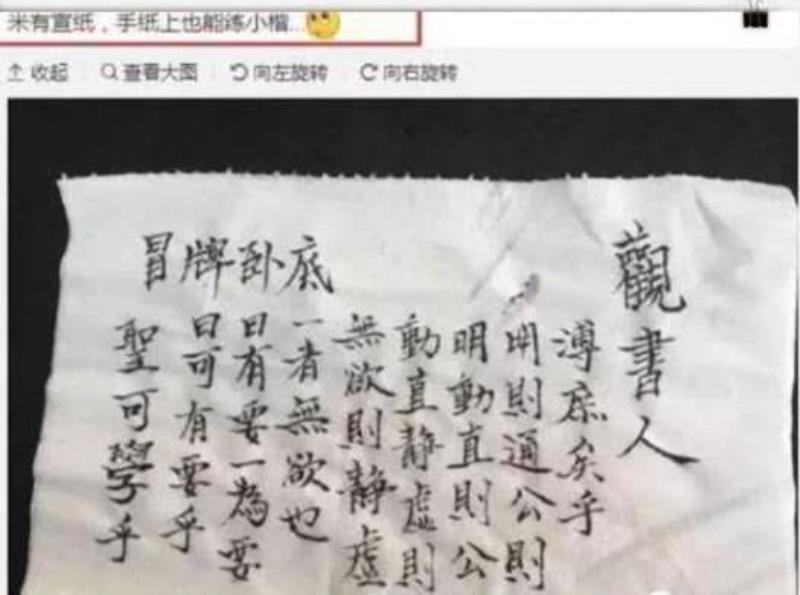 米有宣纸，手纸上也能练小楷...
收起 查看大图 向左旋转 向右旋转
冒牌卧底
聖可學乎
曰可有要乎
曰有要一為要
一者無欲也
無欲則静虛
動直静虛則
明動直則公
明則通公則
溥庶矣乎
觀書人